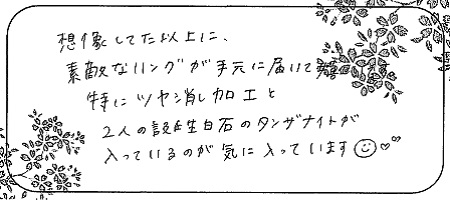 想像してた以上に、
素敵なリングが手元に届いて
特にツヤ消し加工と
2人の誕生日石のタンザナイトが
入っているのが気に入っています